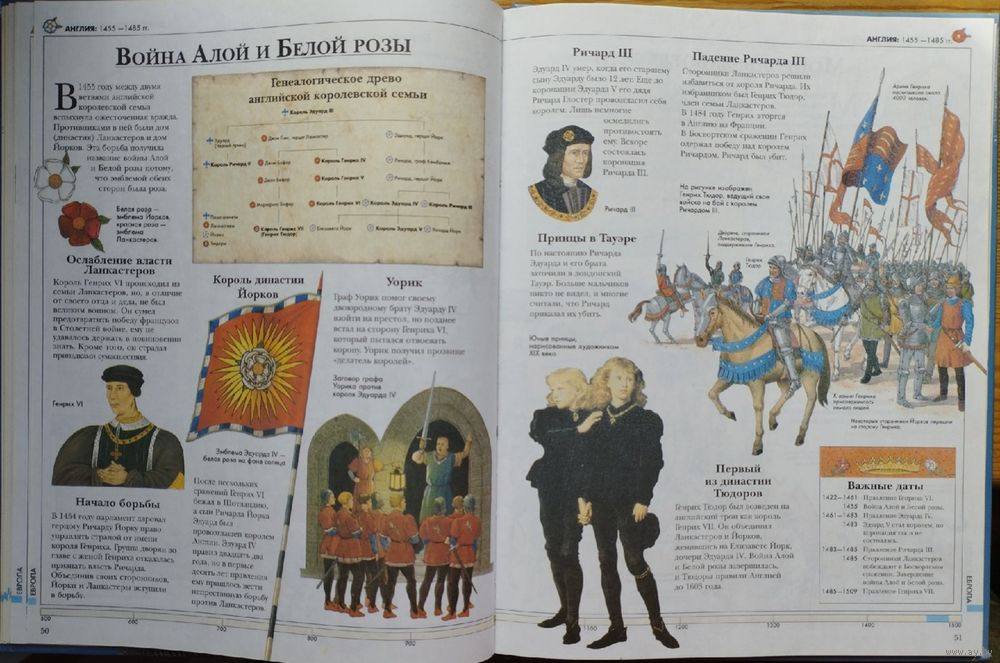 АНГЛИЯ: 1455 — 1485 гг.
ВОЙНА АЛОЙ И БЕЛОЙ РОЗЫ
В 1455 году между двумя
ветвями английской
королевской семьи
вспыхнула ожесточенная вражда.
Противниками в ней были дом
(династия) Ланкастеров и дом
Йорков. Эта борьба получила
название войны Алой
и Белой розы потому,
что эмблемой обеих
сторон была роза.
Белая роза —
эмблема Йорков,
красная роза —
эмблема
Ланкастеров.
Ослабление власти
Ланкастеров
Король Генрих VI происходил из
семьи Ланкастеров, но, в отличие
от своего отца и деда, не был
великим воином. Он сумел
предотвратить победу французов
в Столетней войне, ему не
удавалось держать в повиновении
знать. Кроме того, он страдал
припадками сумасшествия.
Генрих VI
Начало борьбы
В 1454 году парламент даровал
герцогу Ричарду Йорку право
управлять страной от имени
короля Генриха. Группа дворян во
главе с женой Генриха отказалась
признать власть Ричарда.
Объединив своих сторонников,
Йорки и Ланкастеры вступили
в борьбу.
Генеалогическое древо
английской королевской семьи
Король Эдуард III
Король Ричард II
Джон Бофор
Король Генрих IV
Джон Бофор
Король Генрих V
Маргарет Бофор
Король Генрих VI
Король Эдуард IV
Король Ричард III
Король Генрих VII
(Генрих Тюдор)
Елизавета Йорк
Король Эдуард V
Ричард Йорк
Плантагенеты
Ланкастеры
Йорки
Тюдоры
Король династии
Йорков
Эмблема Эдуарда IV —
белая роза на фоне солнца
После нескольких
сражений Генрих VI
бежал в Шотландию,
а сын Ричарда Йорка
Эдуард был
провозглашен королем
Англии. Эдуард IV
правил двадцать два
года, но в первые
десять лет правления
ему пришлось вести
непрестанную борьбу
против Ланкастеров.
Уорик
Граф Уорик помог своему
двоюродному брату Эдуарду IV
взойти на престол, но позднее
встал на сторону Генриха VI,
который пытался отвоевать
корону. Уорик получил прозвище
«делатель королей».
Заговор графа
Уорика против
короля Эдуарда IV
ЕВРОПА
ЕВРОПА
500
600
700
900
50
АНГЛИЯ: 1455 — 1485 гг.
Ричард III
Эдуард IV умер, когда его старшему
сыну Эдуарду было 12 лет. Еще до
коронации Эдуарда V его дядя
Ричард Глостер провозгласил себя
королем. Лишь немногие
осмелились
противостоять
ему. Вскоре
состоялась
коронация
Ричарда III.
Ричард III
Принцы в Тауэре
По настоянию Ричарда
Эдуарда и его брата
заточили в лондонский
Тауэр. Больше мальчиков
никто не видел, и многие
считали, что Ричард
приказал их убить.
Юные принцы,
нарисованные художником
XIX века
Падение Ричарда III
Сторонники Ланкастеров решили
избавиться от короля Ричарда. Их
избранником был Генрих Тюдор,
член семьи Ланкастеров.
В 1484 году Генрих вторгся
в Англию из Франции.
В Босвортском сражении Генрих
одержал победу над королем
Ричардом. Ричард был убит.
На рисунке изображен
Генрих Тюдор, ведущий свои
войска на бой с королем
Ричардом III.
Армия Генриха
насчитывала около
4000 человек.
Дворяне, сторонники
Ланкастеров,
поддержавшие Генриха.
Генрих
Тюдор
К армии Генриха
присоединилось
немало людей.
Некоторые сторонники Йорков перешли
на сторону Генриха.
Первый
из династии
Тюдоров
Генрих Тюдор был возведен на
английский трон как король
Генрих VII. Он объединил
Ланкастеров и Йорков,
женившись на Елизавете Йорк,
дочери Эдуарда IV. Война Алой
и Белой розы завершилась,
и Тюдоры правили Англией
до 1603 года.
Важные даты
1422—1461 Правление Генриха VI.
1455 Война Алой и Белой розы.
1461—1483 Правление Эдуарда IV.
1483 Эдуард V стал королем, но
коронация так и не
состоялась.
1483—1485 Правление Ричарда III.
1485 Сторонники Ланкастеров
побеждают в Босвортском
сражении. Завершение
войны Алой и Белой розы.
1485—1509 Правление Генриха VII.
ЕВРОПА
1100
1200
1300
1400
1500
51
www.ay.by